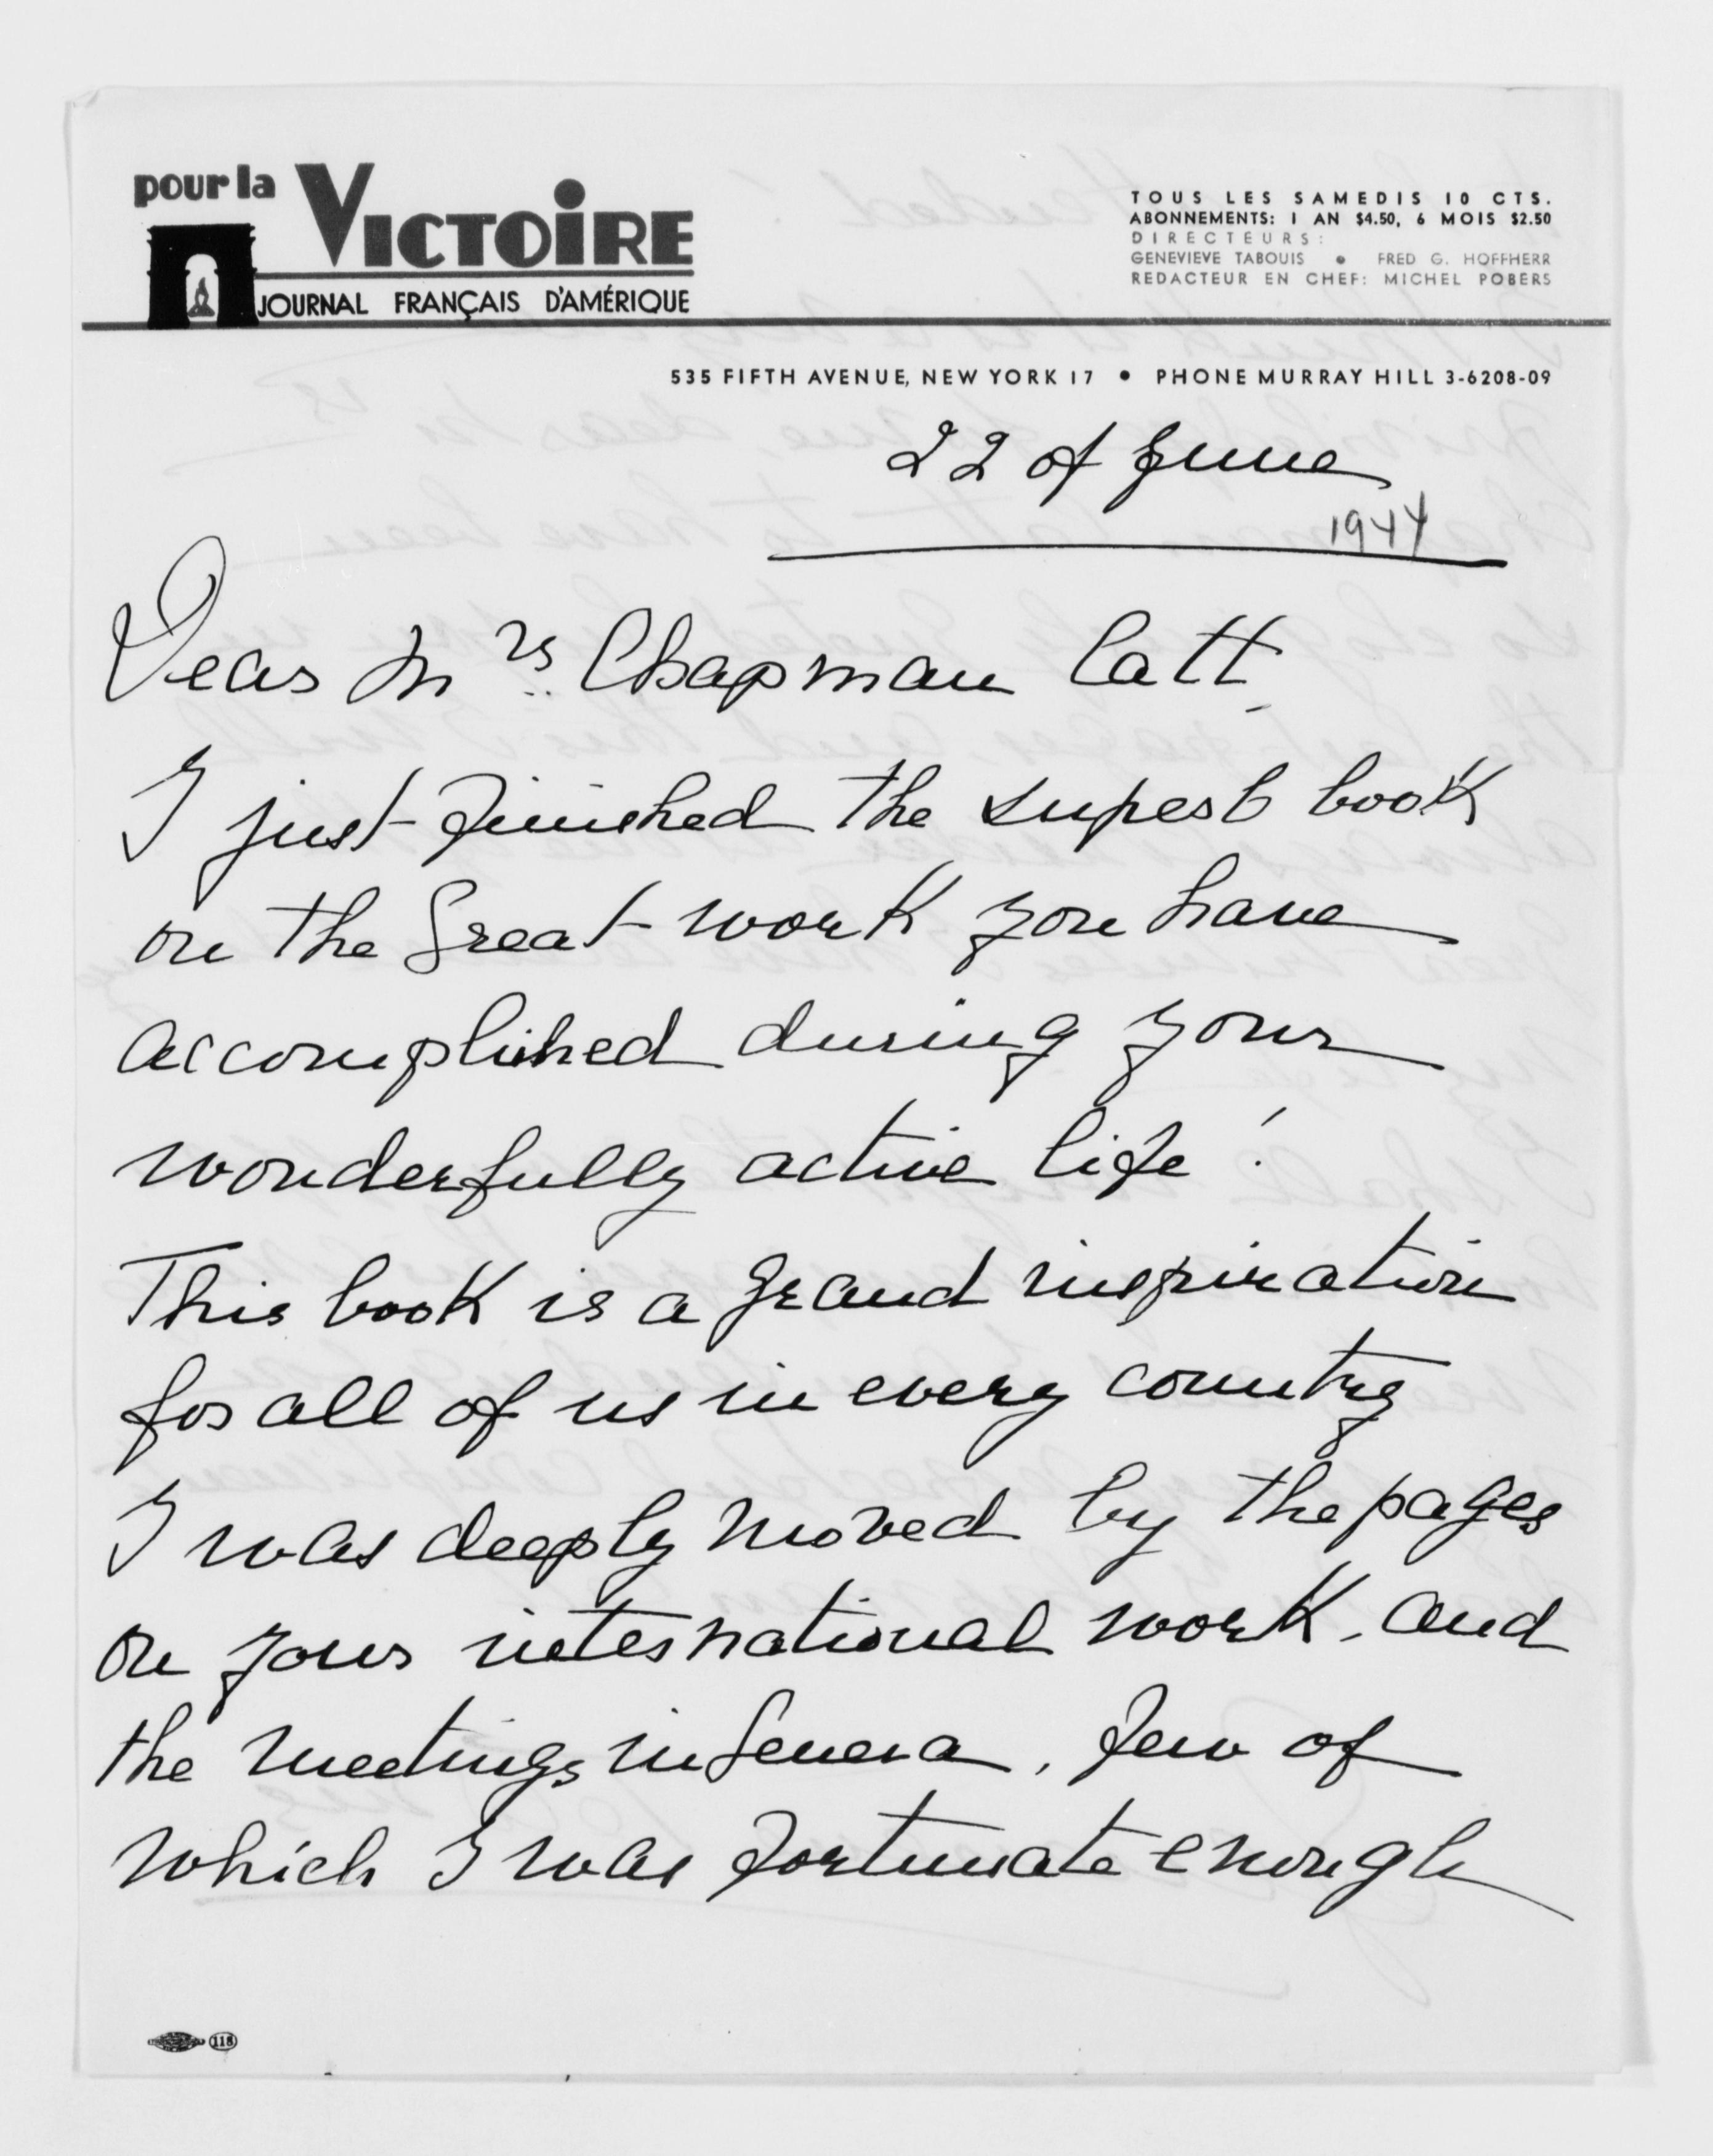 pour la VICTOIRE
JOURNAL FRANÇAIS D'AMÉRIQUE
TOUS LES SAMEDIS 10 CTS.
ABONNEMENTS: 1 AN $4.50, 6 MOIS $2.50
DIRECTEURS:
GENEVIEVE TABOUIS • FRED G. HOFFHERR
REDACTEUR EN CHEF: MICHEL POBERS
535 FIFTH AVENUE, NEW YORK 17 • PHONE MURRAY HILL 3-6208-09
22 of June
1944
Dear Mrs Chapman Catt
I just finished the superb book
on the Great work you have
accomplished during your
wonderfully active life!
This book is a grand inspiration
for all of us in every country
I was deeply moved by the pages
on your international work, and
the meetings in Geneva, few of
which I was fortunate enough
118